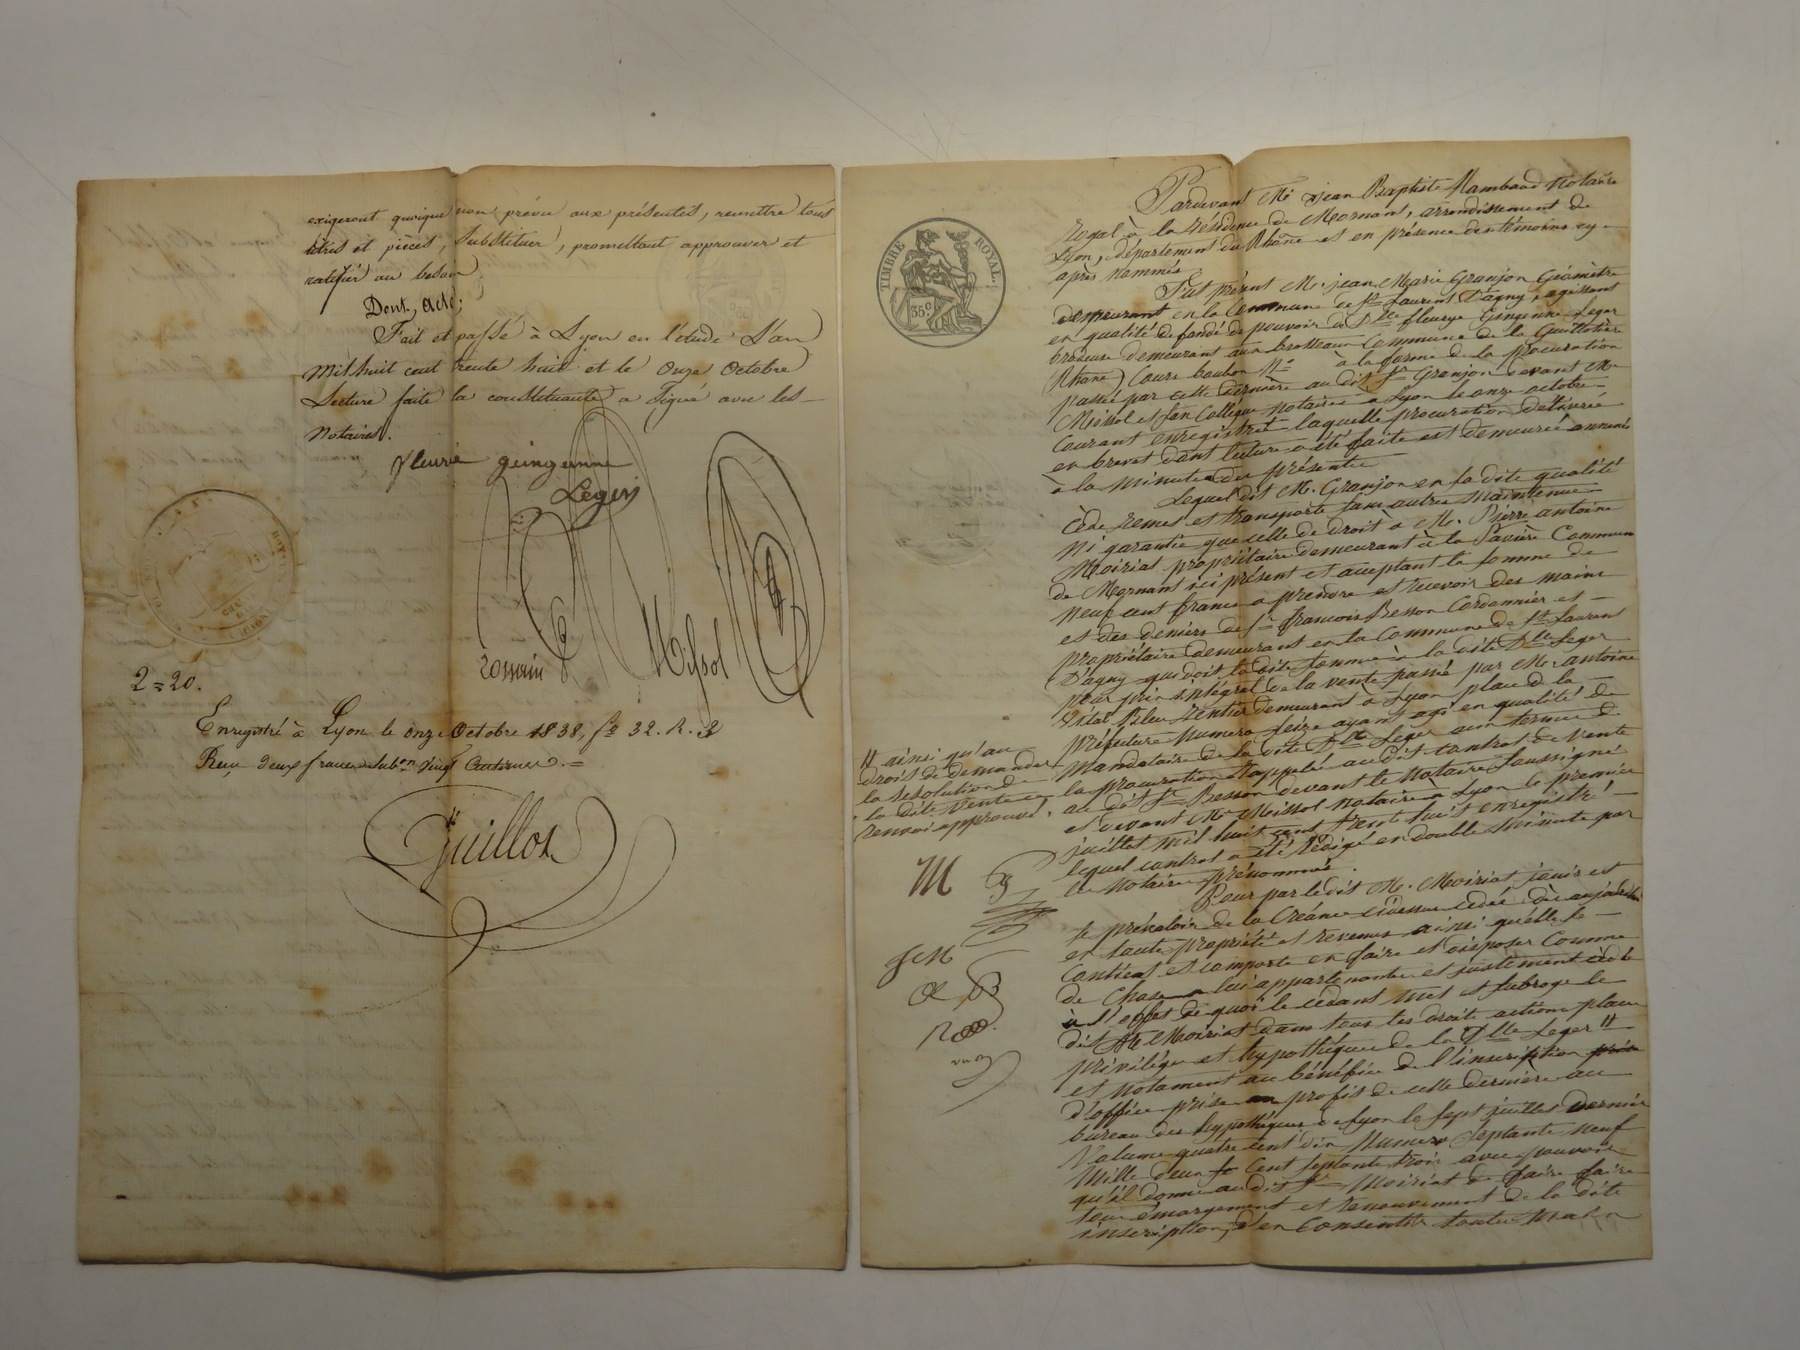 exigeront quoique non prévu aux présentes, remettre tous
titres et pièces, substituer, promettant approuver et
ratifier au besoin.
Dont, acte;
Fait et passé à Lyon en l'étude L'an
mil huit cent trente huit et le onze octobre
Lecture faite la constituante a signé avec les
notaires.
fleurie guingenne
Leger
Missol
2=20.
Enregistré à Lyon le onze Octobre 1838, f° 32. R. 3
Reçu deux francs subon vingt Centimes.=
Guillot
TIMBRE ROYAL.
35.c
Pardevant Me Jean Baptiste Rambaud Notaire
royal à la résidence de Mornant, arrondissement de
Lyon, département du Rhône et en présence des témoins cy-
après nommés
Fut présent M. jean Marie Granjon Géomètre
demeurant en la Commune de St Laurent D'agny, agissant
en qualité de fondé de pouvoir de Dlle fleurye Gingenne Leger
brodeuse demeurant aux brotteaux Commune de la Guillotière
(Rhône) Cours bourbon No à la forme de la procuration
passée par cette dernière au dit Sr Granjon devant Me
Missol et son Collègue notaires à Lyon le onze octobre
Courant enregistré laquelle procuration délivrée
en brevet dont lecture a été faite est demeurée annexée
à la minute des présentes
Lequel dit M. Granjon en sa dite qualité
cède remet et transporte sans autre maintenue
ni garantie que celle de droit à M. Pierre antoine
Moiriat propriétaire demeurant à la Pavière Commune
de Mornant ici présent et acceptant la somme de
neuf cent francs a prendre et recevoir des mains
et des deniers de Sr francois Besson Cordonnier et
propriétaire demeurant en la Commune de St Laurent
D'agny qui doit la dite somme à la dite Dlle Leger
pour prix intégral de la vente passée par M. antoine
Vital Bleu Rentier demeurant à Lyon place de la
préfecture numero seize ayant agi en qualité de
Mandataire de la dite Dlle Leger aux termes de
la procuration rappelée au dit contrat de vente
au dit Sr Besson devant le Notaire soussigné
et devant Me Missol notaire à Lyon le premier
juillet mil huit cent trente huit enregistré
lequel contrat a été rédigé en double minute par
les Notaires prénommés.
Pour par le dit M. Moiriat jouir et
se prévaloir de la Créance cidessus cédée dès aujourd'hui
en toute propriété et revenus ainsi qu'elle se
Contient et comporte en faire et disposer Comme
de Chose a lui appartenante et justement cédé
à l'effet de quoi le cédant met et subroge le
dit M. Moiriat dans tous les droits actions place
privilége et hypothèques de la Dlle Leger //
et notament au bénéfice de l'inscription prise
d'office prise au profit de cette dernière au
bureau des hypothèques de Lyon le sept juillet dernier
Volume quatre cent dix Numero Septante neuf
mille deux Cent septante trois avec pouvoir
qu'il donne au dit Sr Moiriat de faire faire
tous émargement et renouvement de la dite
inscription, d'en Consentir toutes
// ainsi qu'au
droit de demander
la resolution de
la dite vente
renvoi approuvé.
M
JM